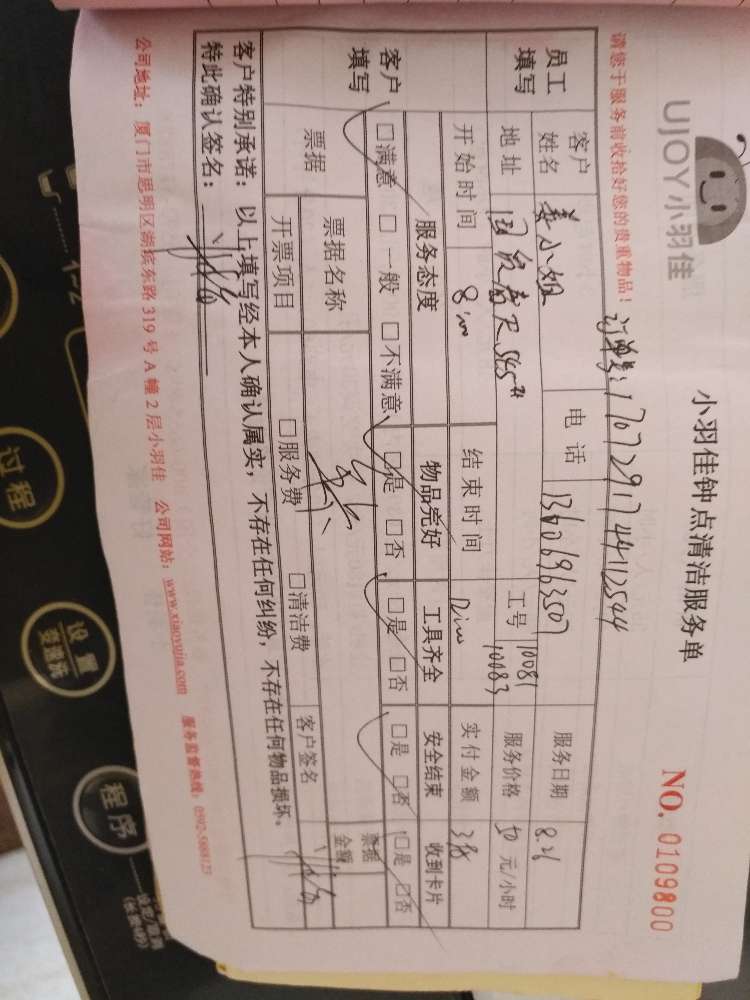 UJOY小羽佳
小羽佳钟点清洁服务单
NO. 0109800
请您于服务前收拾好您的贵重物品！
订单号:17072917441 2544
员工填写
客户姓名 姜小姐 电话 13606963507 服务日期 8.26
地址 工号 10081 10083 服务价格 50 元/小时
开始时间 8:00 结束时间 12:00 实付金额
客户填写
服务态度 物品完好 工具齐全 安全结束 收到卡片
□满意 □一般 □不满意 □是 □否 □是 □否 □是 □否 □是 □否
票据 票据名称 票据金额
开票项目 □服务费 □清洁费 客户签名
客户特别承诺：以上填写经本人确认属实，不存在任何纠纷，不存在任何物品损坏。
特此确认签名：
公司地址：厦门市思明区湖滨东路 319 号 A 幢 2 层小羽佳 公司网站：www.xiaoyujia.com 服务监督热线：0592-5608123
过程
设置
程序